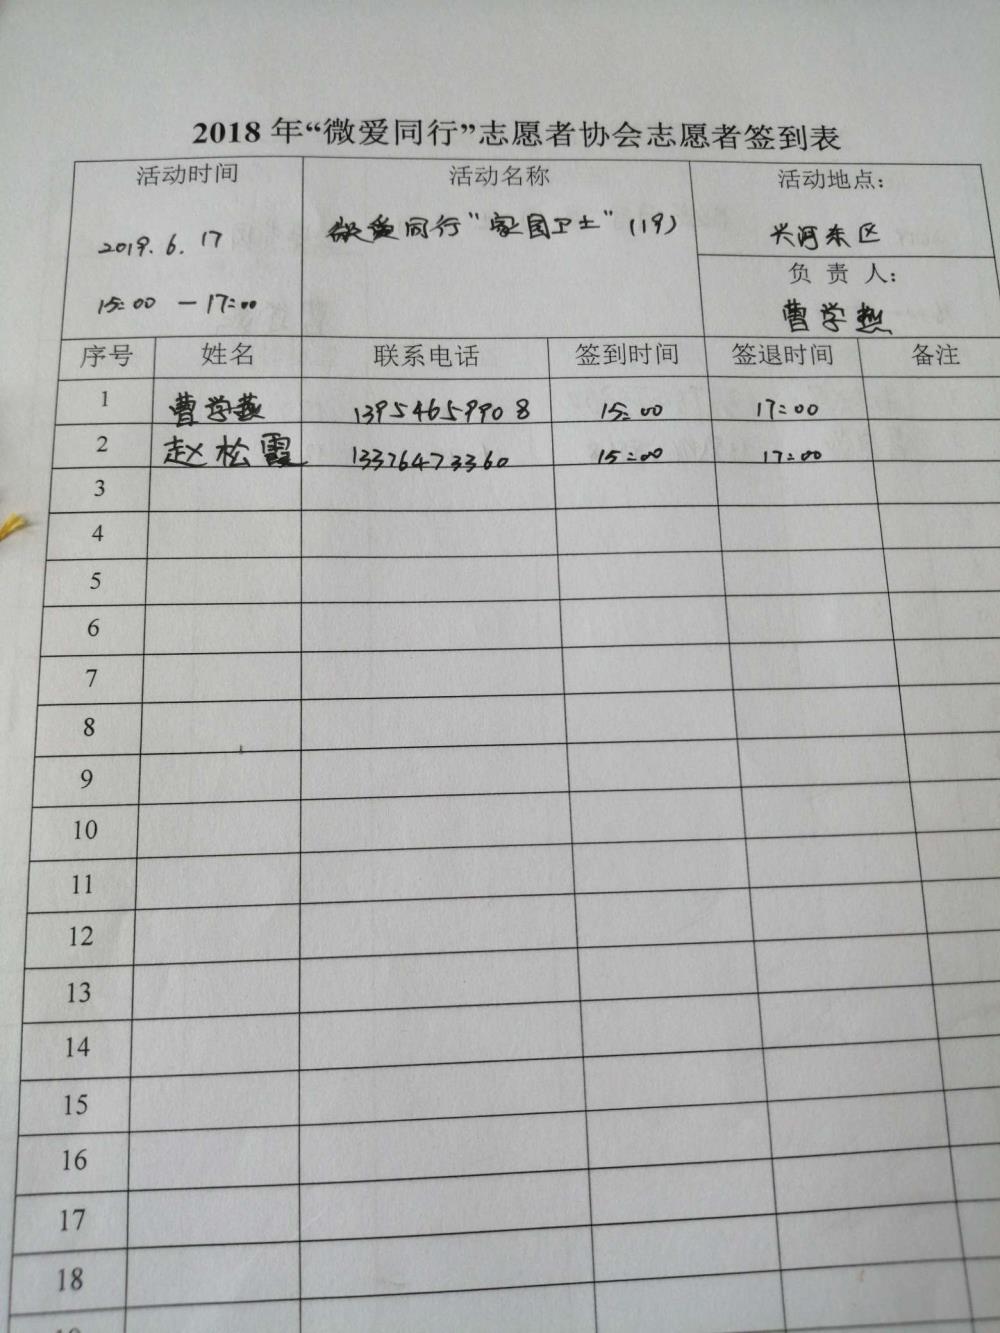 2018 年“微爱同行”志愿者协会志愿者签到表
活动时间 活动名称 活动地点：
2019.6.17 微爱同行"家园卫士"(19) 兴河东区
15:00 —17:00 负 责 人：
曹学燕
序号 姓名 联系电话 签到时间 签退时间 备注
1 曹学燕 13954659908 15:00 17:00
2 赵松霞 13376473360 15:00 17:00
3
4
5
6
7
8
9
10
11
12
13
14
15
16
17
18